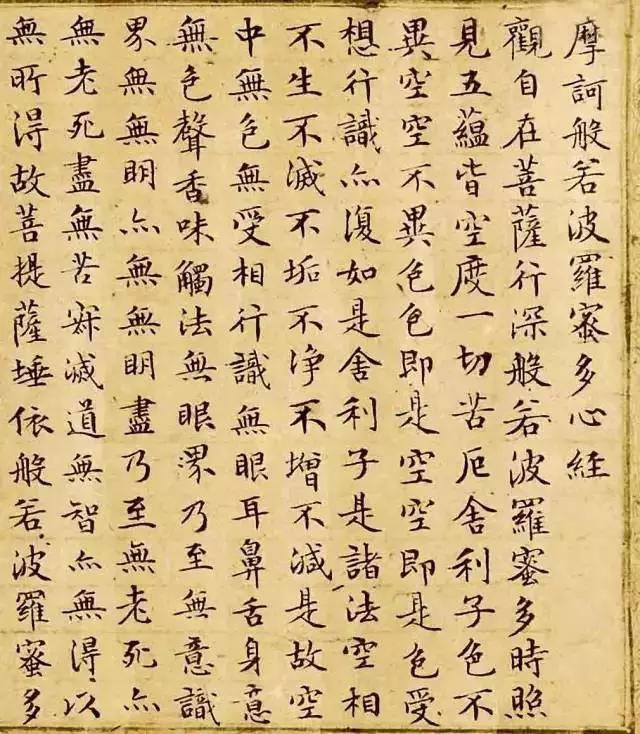 摩訶般若波羅蜜多心経
觀自在菩薩行深般若波羅蜜多時照
見五蘊皆空度一切苦厄舍利子色不
異空空不異色色即是空空即是色受
想行識亦復如是舍利子是諸法空相
不生不滅不垢不淨不增不減是故空
中無色無受相行識無眼耳鼻舌身意
無色聲香味觸法無眼界乃至無意識
界無無明亦無無明盡乃至無老死亦
無老死盡無苦寂滅道無智亦無得以
無所得故菩提薩埵依般若波羅蜜多